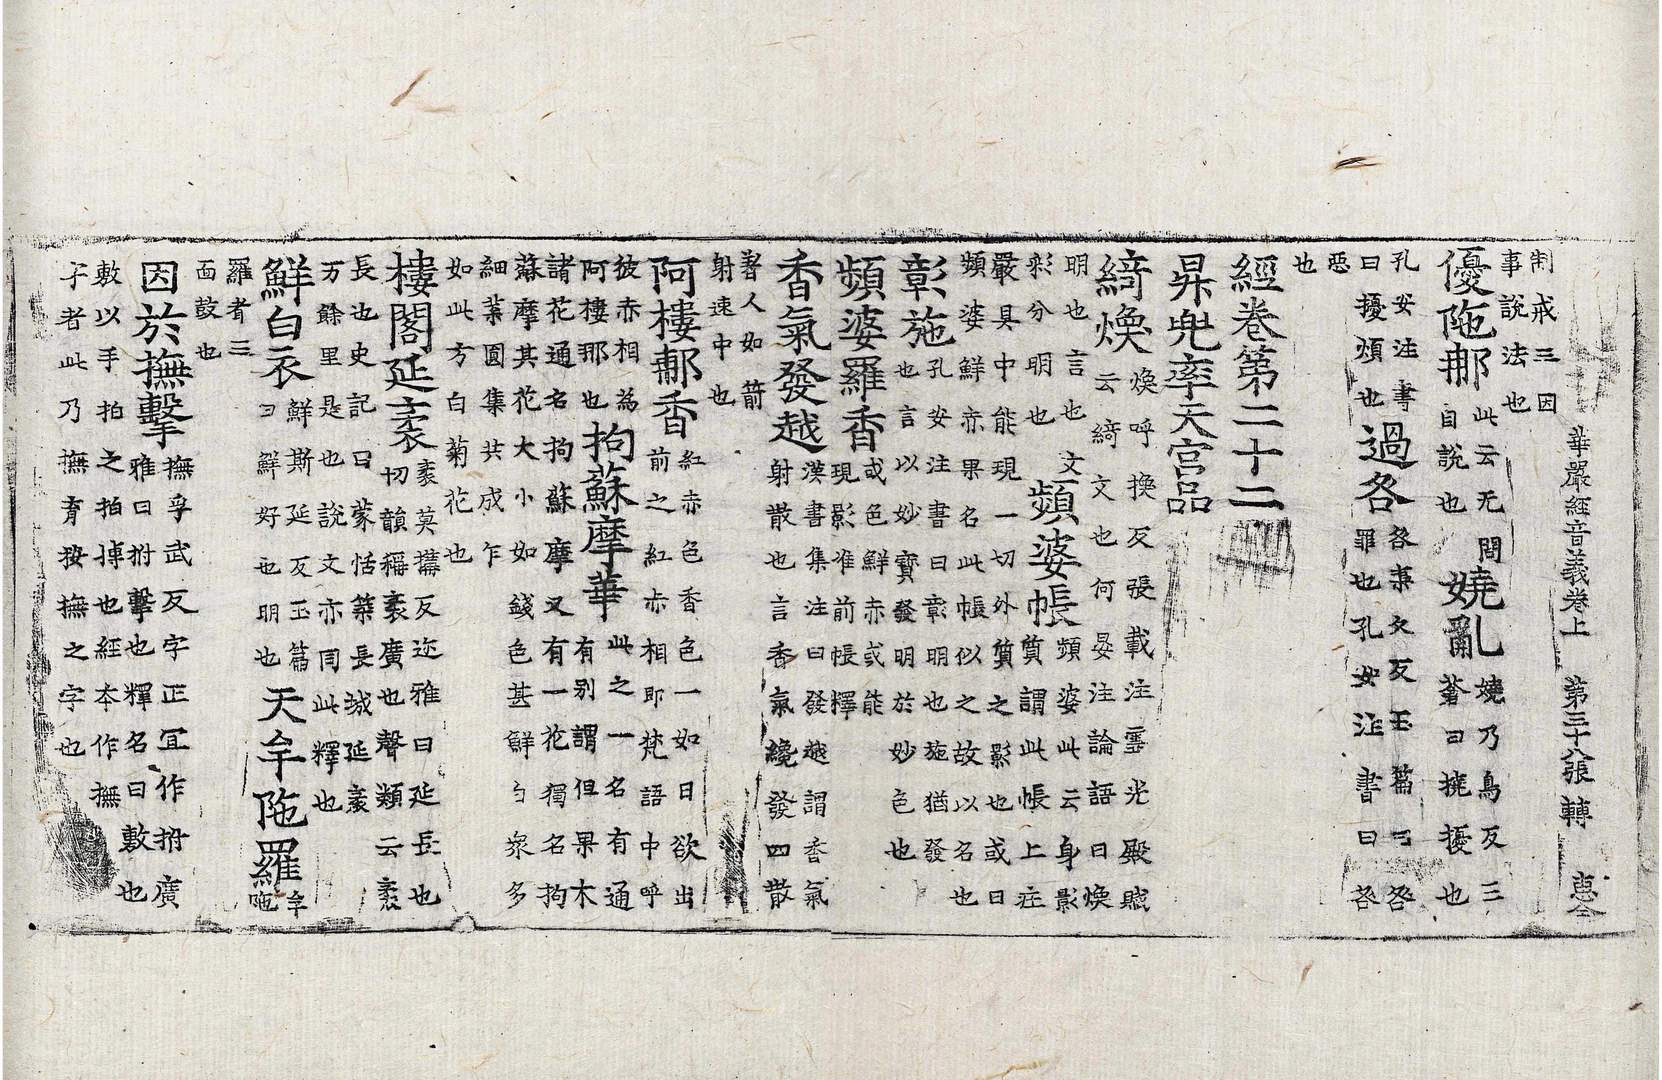 華嚴經音義卷上　第三十八張　轉
制戒三因
事說法也
優陁那
此云无問
自說也
嬈亂
嬈乃鳥反三
蒼曰撓擾也
孔安注書
曰擾煩也
過咎
咎渠久反玉篇云咎
罪也孔安注書曰咎
惡
也
經卷第二十二
昇兜率天宮品
綺煥
煥呼換反張載注靈光殿賦
云綺文也何晏注論語曰煥
明也言也文
彩分明也
頻婆帳
頻婆此云身影
質謂此帳上莊
嚴具中能現一切外質之影也或曰
頻婆鮮赤果名此帳似之故以名也
彰施
孔安注書曰彰明也施猶發
也言以妙寶發明於妙色也
頻婆羅香
或色鮮赤或能
現影准前帳釋
香氣發越
漢書集注曰發越謂香氣
射散也言香氣纔發四散
人如箭
射速中也
阿樓那香
紅赤色香色一如日欲出
前之紅赤相即梵語中呼
彼赤相為
阿樓那也
拘蘇摩華
此之一名有通
有別謂但果木
諸花通名拘蘇摩又有一花獨名拘
蘇摩其花大小如錢色甚鮮白衆多
細葉圓集共成乍
如此方白菊花也
樓閣延袤
袤莫搆反迩雅曰延長也
切韻稱袤廣也聲類云袤
長也史記曰蒙恬築長城延袤
万餘里是也說文亦同此釋也
鮮白衣
鮮斯延反玉篇
曰鮮好也明也
天牟陁羅
牟
陁
羅者三
面鼓也
因於撫擊
撫孚武反字正宜作拊廣
雅曰拊擊也釋名曰敷也
敷以手拍之拍搏也經本作撫
字者此乃撫育按撫之字也